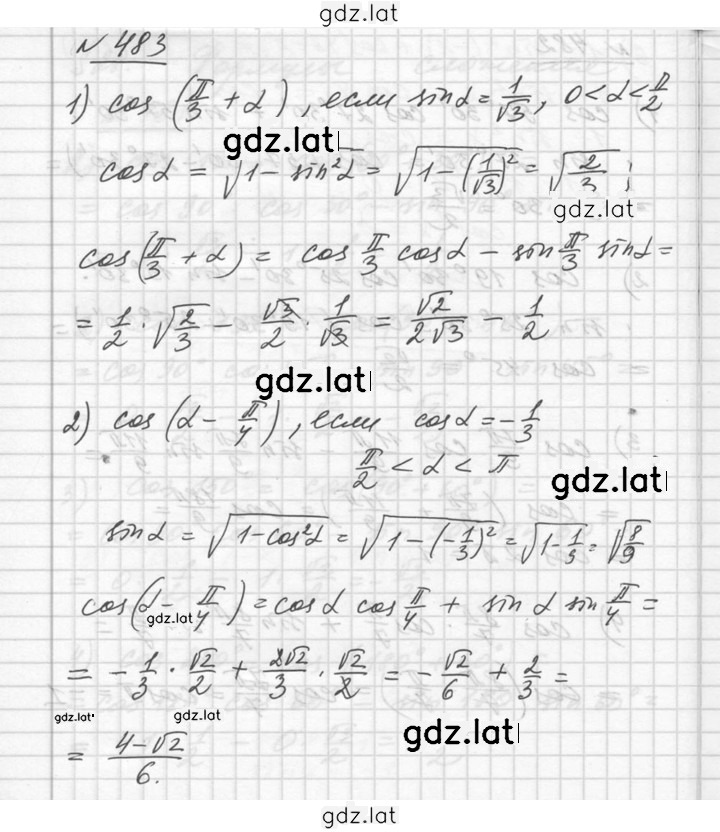 gdz.lat
№ 483
1) cos (π/3 + α), если sinα = 1/√3, 0 < α < π/2
gdz.lat
cosα = √(1 - sin²α) = √(1 - (1/√3)²) = √(2/3);
gdz.lat
cos(π/3 + α) = cos π/3 cosα - sin π/3 sinα =
= 1/2 · √(2/3) - √3/2 · 1/√3 = √2/(2√3) - 1/2
gdz.lat
2) cos (α - π/4), если cosα = -1/3
π/2 < α < π
gdz.lat
sinα = √(1-cos²α) = √(1-(-1/3)²) = √(1-1/9) = √(8/9)
cos(α - π/4) = cosα cos π/4 + sinα sin π/4 =
gdz.lat
= -1/3 · √2/2 + 2√2/3 · √2/2 = -√2/6 + 2/3 =
gdz.lat
gdz.lat
gdz.lat
= (4-√2)/6.
gdz.lat